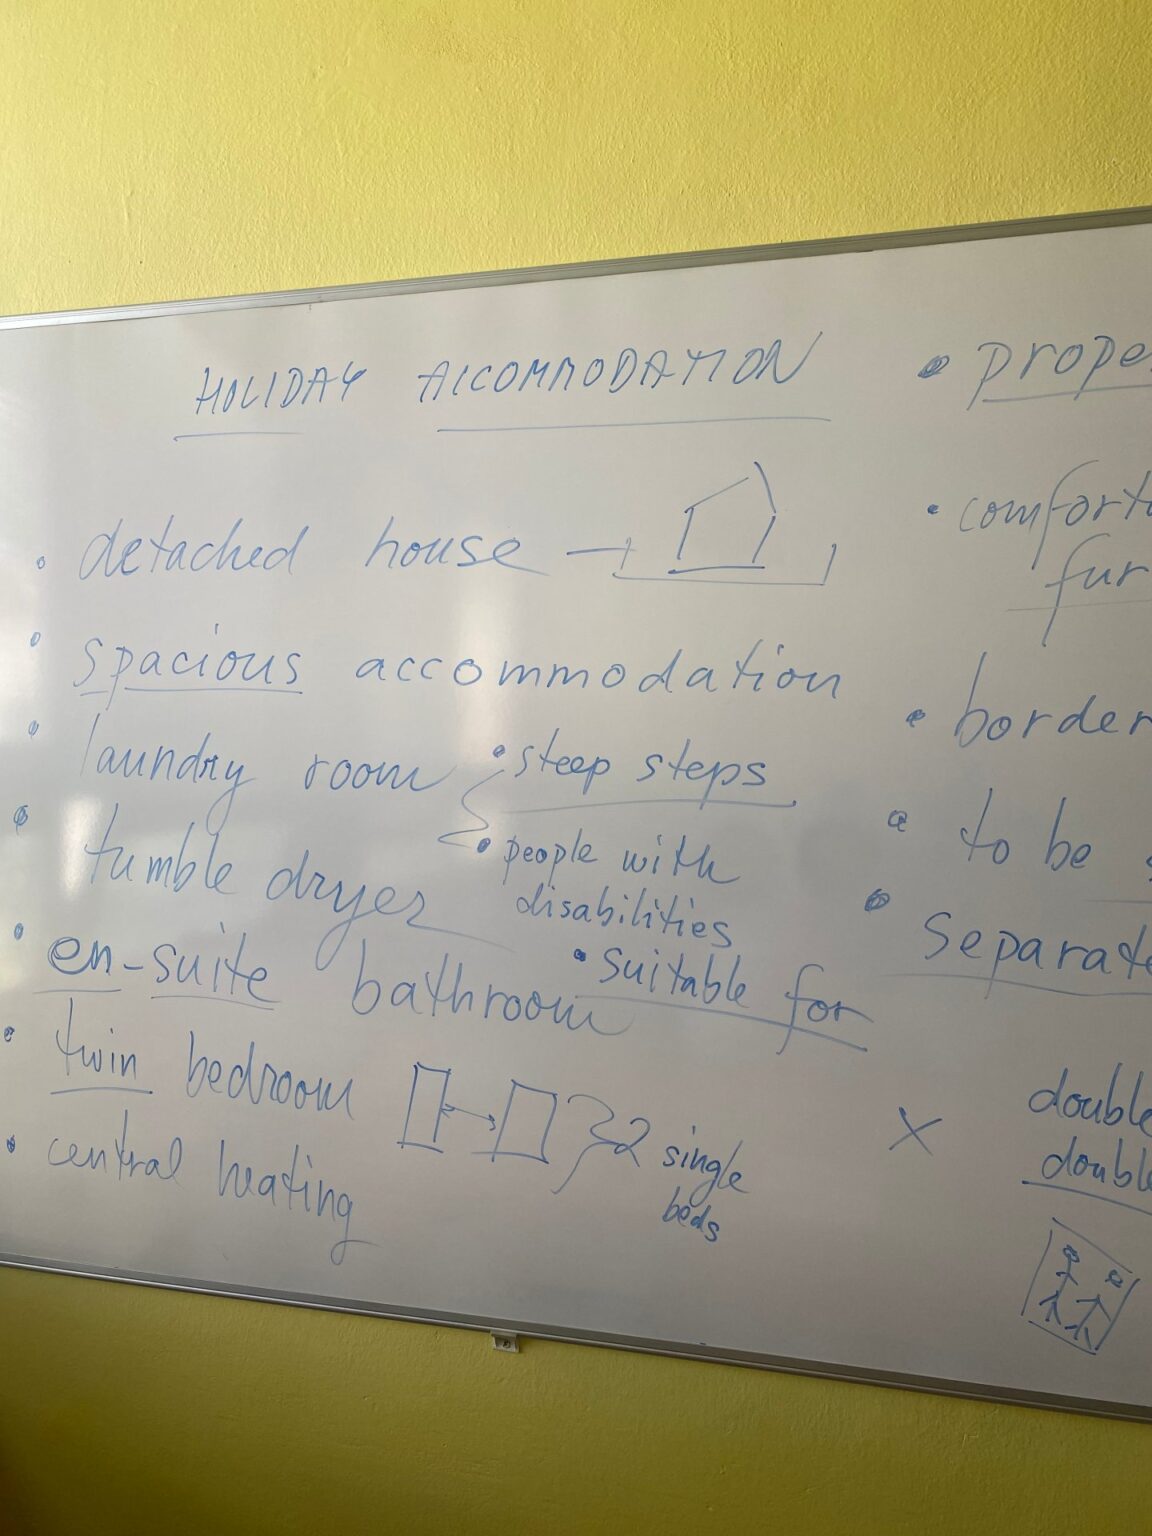 HOLIDAY ACCOMMODATION
• detached house
• spacious accommodation
• laundry room
• tumble dryer
• en-suite bathroom
• twin bedroom
2 single
beds
• central heating
• steep steps
• people with
disabilities
• suitable for
• prope
• comforta
fur
• border
• to be
• separate
x double
double